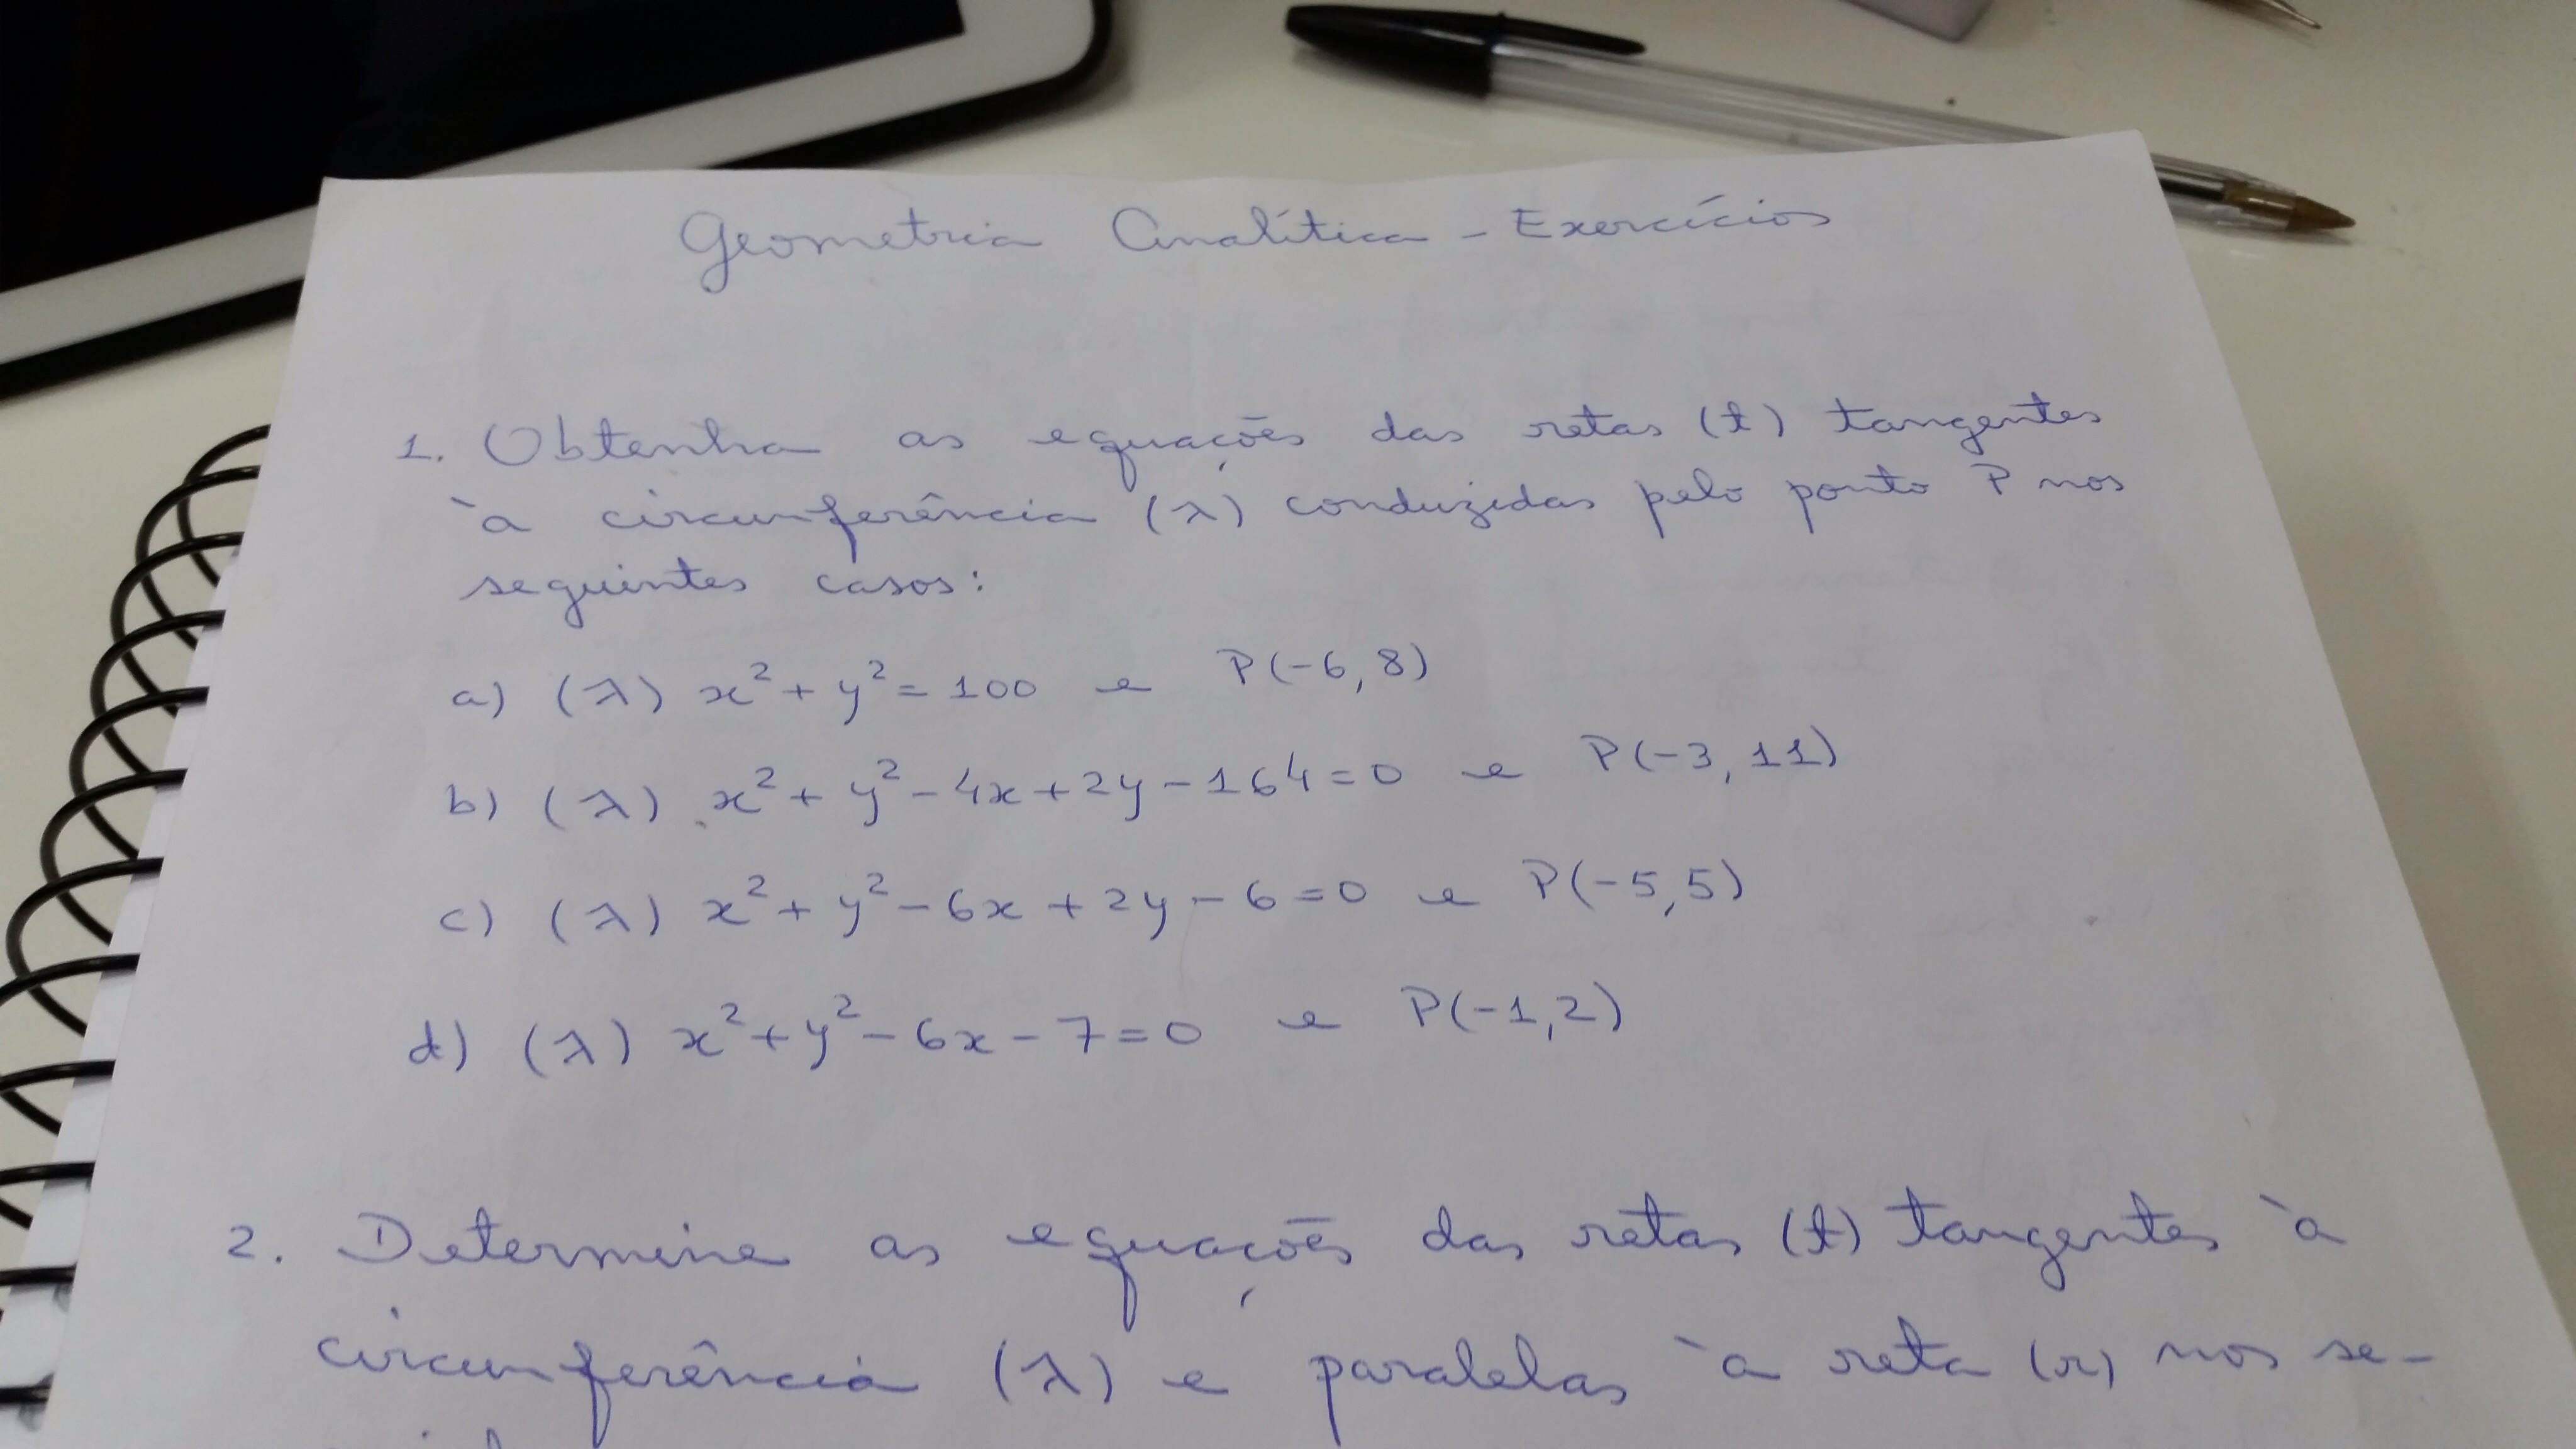 Geometria Analítica - Exercícios
1. Obtenha as equações das retas (t) tangentes
à circunferência (λ) conduzidas pelo ponto P nos
seguintes casos:
a) (λ) x² + y² = 100 e P(-6, 8)
b) (λ) x² + y² - 4x + 2y - 164 = 0 e P(-3, 11)
c) (λ) x² + y² - 6x + 2y - 6 = 0 e P(-5, 5)
d) (λ) x² + y² - 6x - 7 = 0 e P(-1, 2)
2. Determine as equações das retas (t) tangentes à
circunferência (λ) e paralelas à reta (r) nos se-